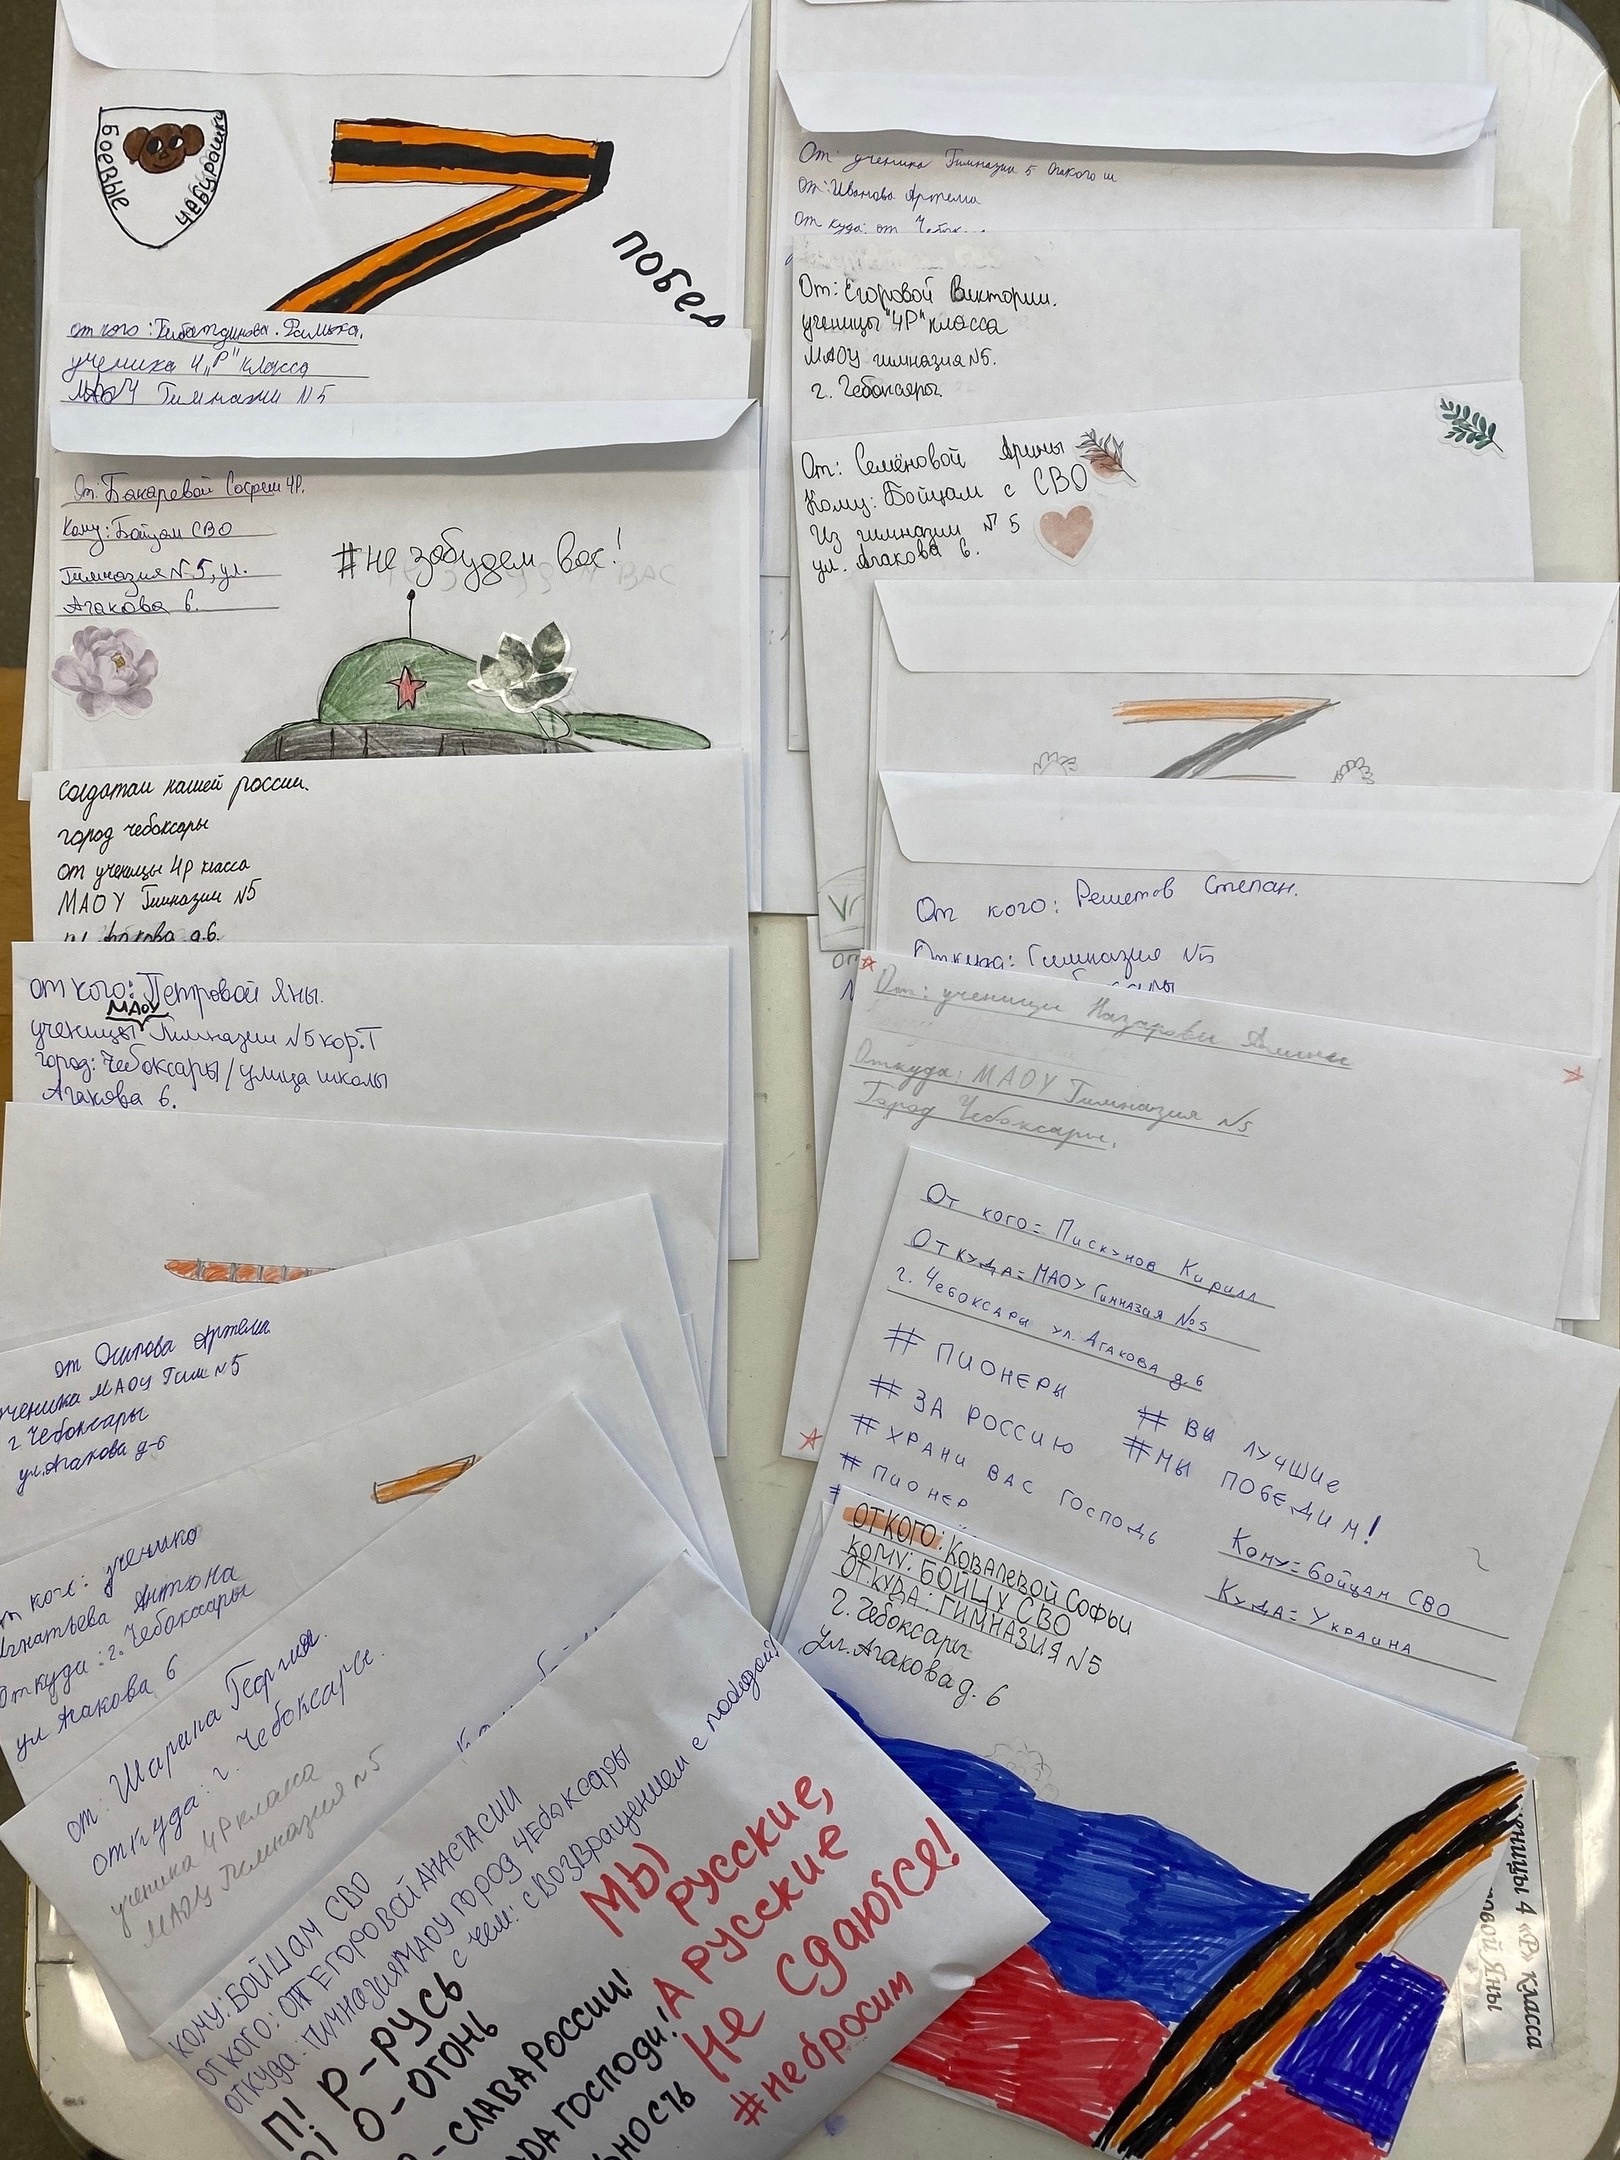 боевые чебурашки
ПОБЕД
ученика 4 „Р" класса
МАОУ Гимназии N5
От: Бакаревой Софьи 4Р.
Кому: Бойцам СВО
Гимназия N5, ул.
Агакова 6.
#не забудем вас!
солдатам нашей россии.
город чебоксары
от ученицы 4р класса
МАОУ Гимназии N5
Агакова д.6.
от кого: Петровой Яны.
МАОУ
ученицы Гимназии N5 кор.Т
город: Чебоксары/улица школы
Агакова 6.
от Осипова Артема
ученика МАОУ Гим N5
г Чебоксары
ул.Агакова д-6
от кого: ученика
Игнатьева Антона
Откуда: г. Чебоксары
ул Агакова 6
от: Шарина Георгия.
откуда: г. Чебоксары.
ученика 4Р класса
МАОУ Гимназия N5
КОМУ: БОЙЦАМ СВО
ОТ КОГО: ОТ ЕГОРОВОЙ АНАСТАСИИ
ОТКУДА: ГИМНАЗИЯ МАОУ ГОРОД ЧЕбоКСАРЫ
с чем: с возвращением с победой!
П! Р-РУСЬ
О-ОГОНЬ
-СЛАВА РОССИИ!
ГОСПОДИ!
МЫ
русские,
А русские
Не сдаются!
#небросим
От ученика Гимназии 5
От: Иванова Артема
От куда: от Чебок
От: Егоровой Виктории.
ученицы "4Р" класса
МАОУ гимназия N5.
г. Чебоксары.
От: Семёновой Арины
Кому: Бойцам с СВО
Из гимназии N 5
ул. Агакова 6.
От кого: Решетов Степан.
Откуда: Гимназия N5
От: ученицы Назаровой
Откуда: МАОУ Гимназия N5
Город Чебоксары.
От кого= Пискунов Кирилл
Откуда= МАОУ Гимназия №5
г. Чебоксары ул. Агакова д.6
# ПИОНЕРЫ
# ЗА РОССИЮ
# ХРАНИ ВАС ГОСПОДЬ
# ПИОНЕР
# ВЫ ЛУЧШИЕ
# МЫ ПОБЕДИМ!
Кому= Бойцам СВО
Куда= Украина
ОТ КОГО: Ковалевой Софьи
КОМУ: БОЙЦУ СВО
ОТКУДА: ГИМНАЗИЯ N5
г. Чебоксары
Ул. Агакова д. 6
ницы 4 «Р» класса
овой Яны